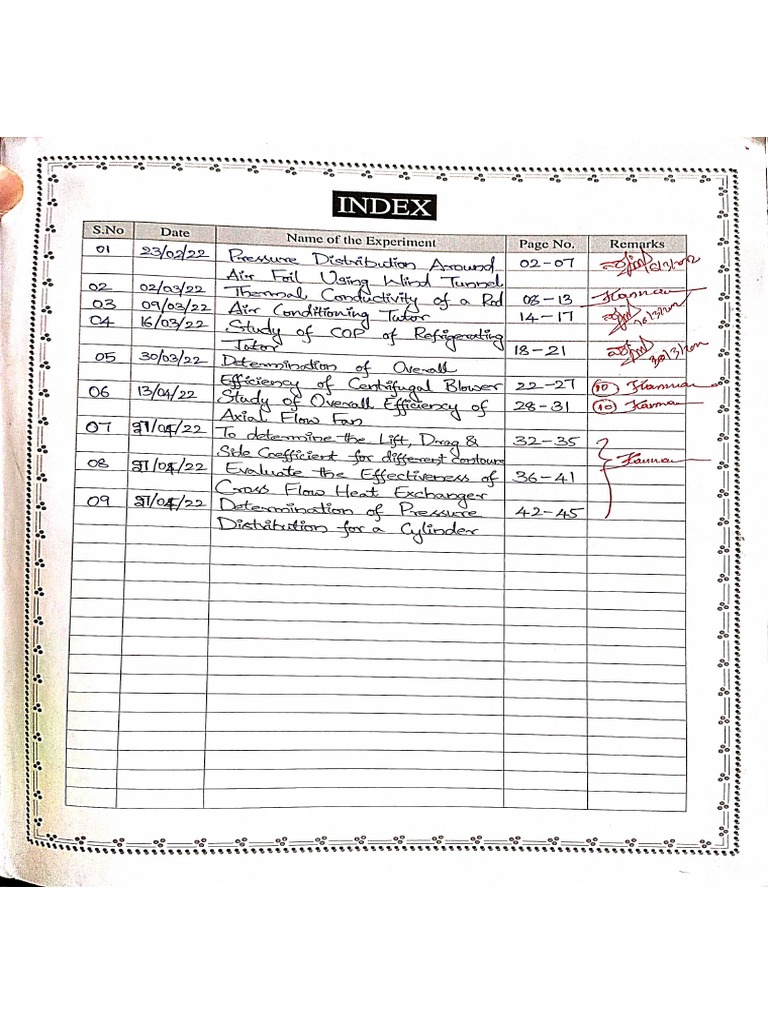 INDEX
S.No Date Name of the Experiment Page No. Remarks
01 23/02/22 Pressure Distribution Around 02-07
Air Foil Using Wind Tunnel
02 02/03/22 Thermal Conductivity of a Rod 08-13
03 09/03/22 Air Conditioning Tutor 14-17
04 16/03/22 Study of COP of Refrigerating
Tutor 18-21
05 30/03/22 Determination of Overall
Efficiency of Centrifugal Blower 22-27 10
06 13/04/22 Study of Overall Efficiency of 28-31 10
Axial Flow Fan
07 /04/22 To determine the Lift, Drag & 32-35
Side Coefficient for different contours
08 /04/22 Evaluate the Effectiveness of 36-41
Cross Flow Heat Exchanger
09 /04/22 Determination of Pressure 42-45
Distribution for a Cylinder